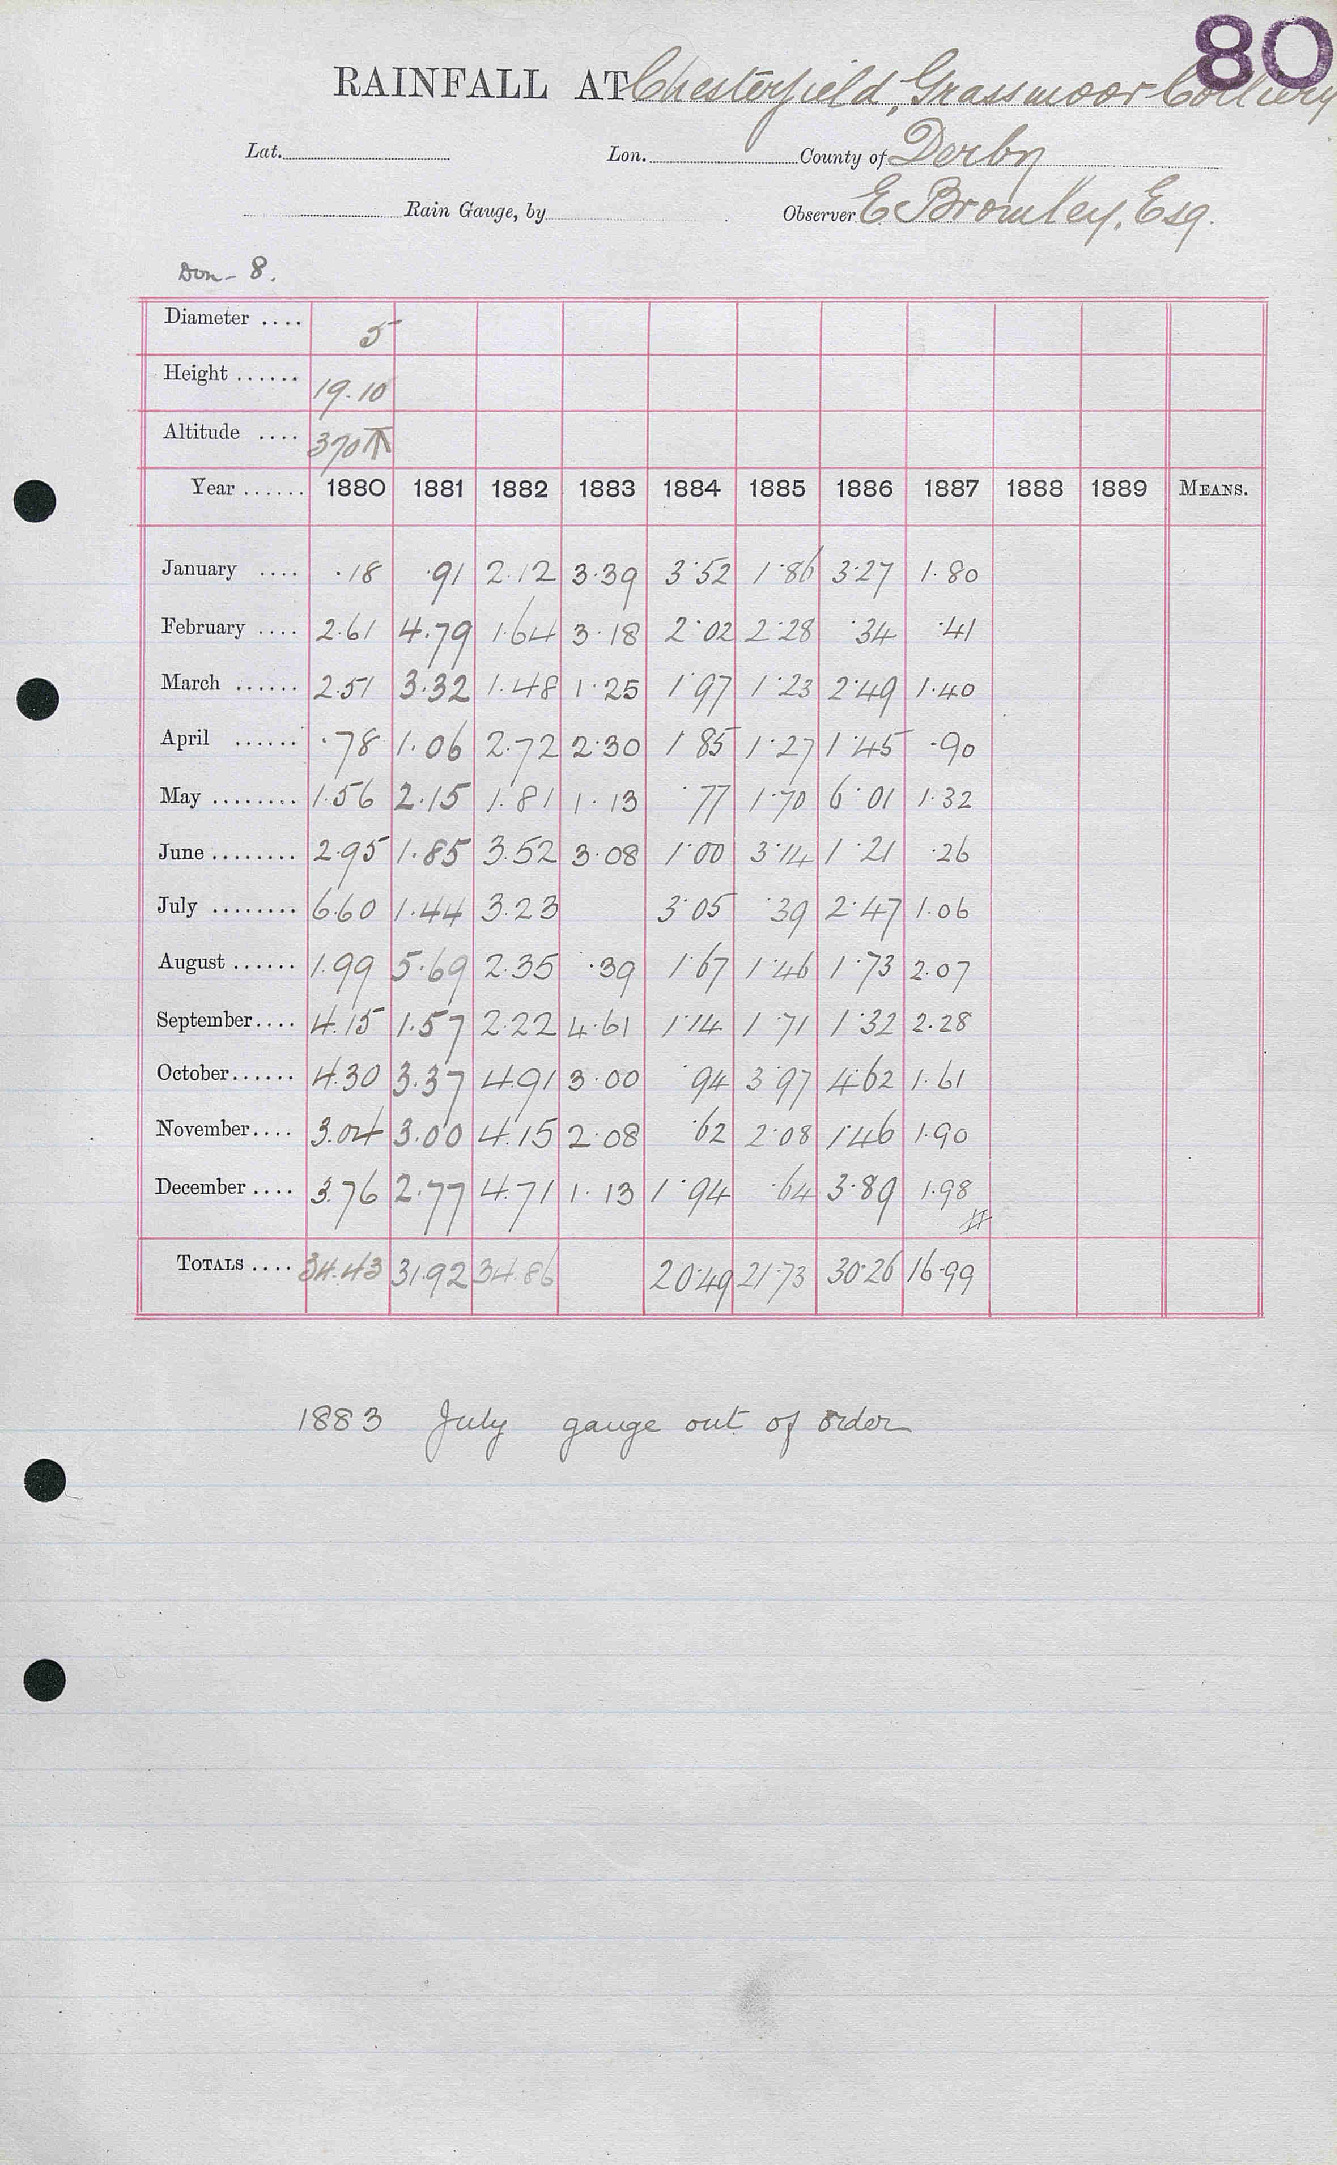 80
RAINFALL AT Chesterfield, Grassmoor Colliery
Lat. Lon. County of Derby
Rain Gauge, by Observer E. Bromley, Esq.
Don - 8.
Diameter .... 5
Height ...... 19.10
Altitude .... 370
Year ...... 1880 1881 1882 1883 1884 1885 1886 1887 1888 1889 MEANS.
January .... .18 .91 2.12 3.39 3.52 1.86 3.27 1.80
February .... 2.61 4.79 1.64 3.18 2.02 2.28 .34 .41
March ...... 2.51 3.32 1.48 1.25 1.97 1.23 2.49 1.40
April ...... .78 1.06 2.72 2.30 1.85 1.27 1.45 .90
May ........ 1.56 2.15 1.81 1.13 .77 1.70 6.01 1.32
June ........ 2.95 1.85 3.52 3.08 1.00 3.14 1.21 .26
July ........ 6.60 1.44 3.23 3.05 .39 2.47 1.06
August ...... 1.99 5.69 2.35 .39 1.67 1.46 1.73 2.07
September.... 4.15 1.57 2.22 4.61 1.14 1.71 1.32 2.28
October...... 4.30 3.37 4.91 3.00 .94 3.97 4.62 1.61
November.... 3.04 3.00 4.15 2.08 .62 2.08 1.46 1.90
December .... 3.76 2.77 4.71 1.13 1.94 .64 3.89 1.98
TOTALS .... 34.43 31.92 34.86 20.49 21.73 30.26 16.99
1883 July gauge out of order